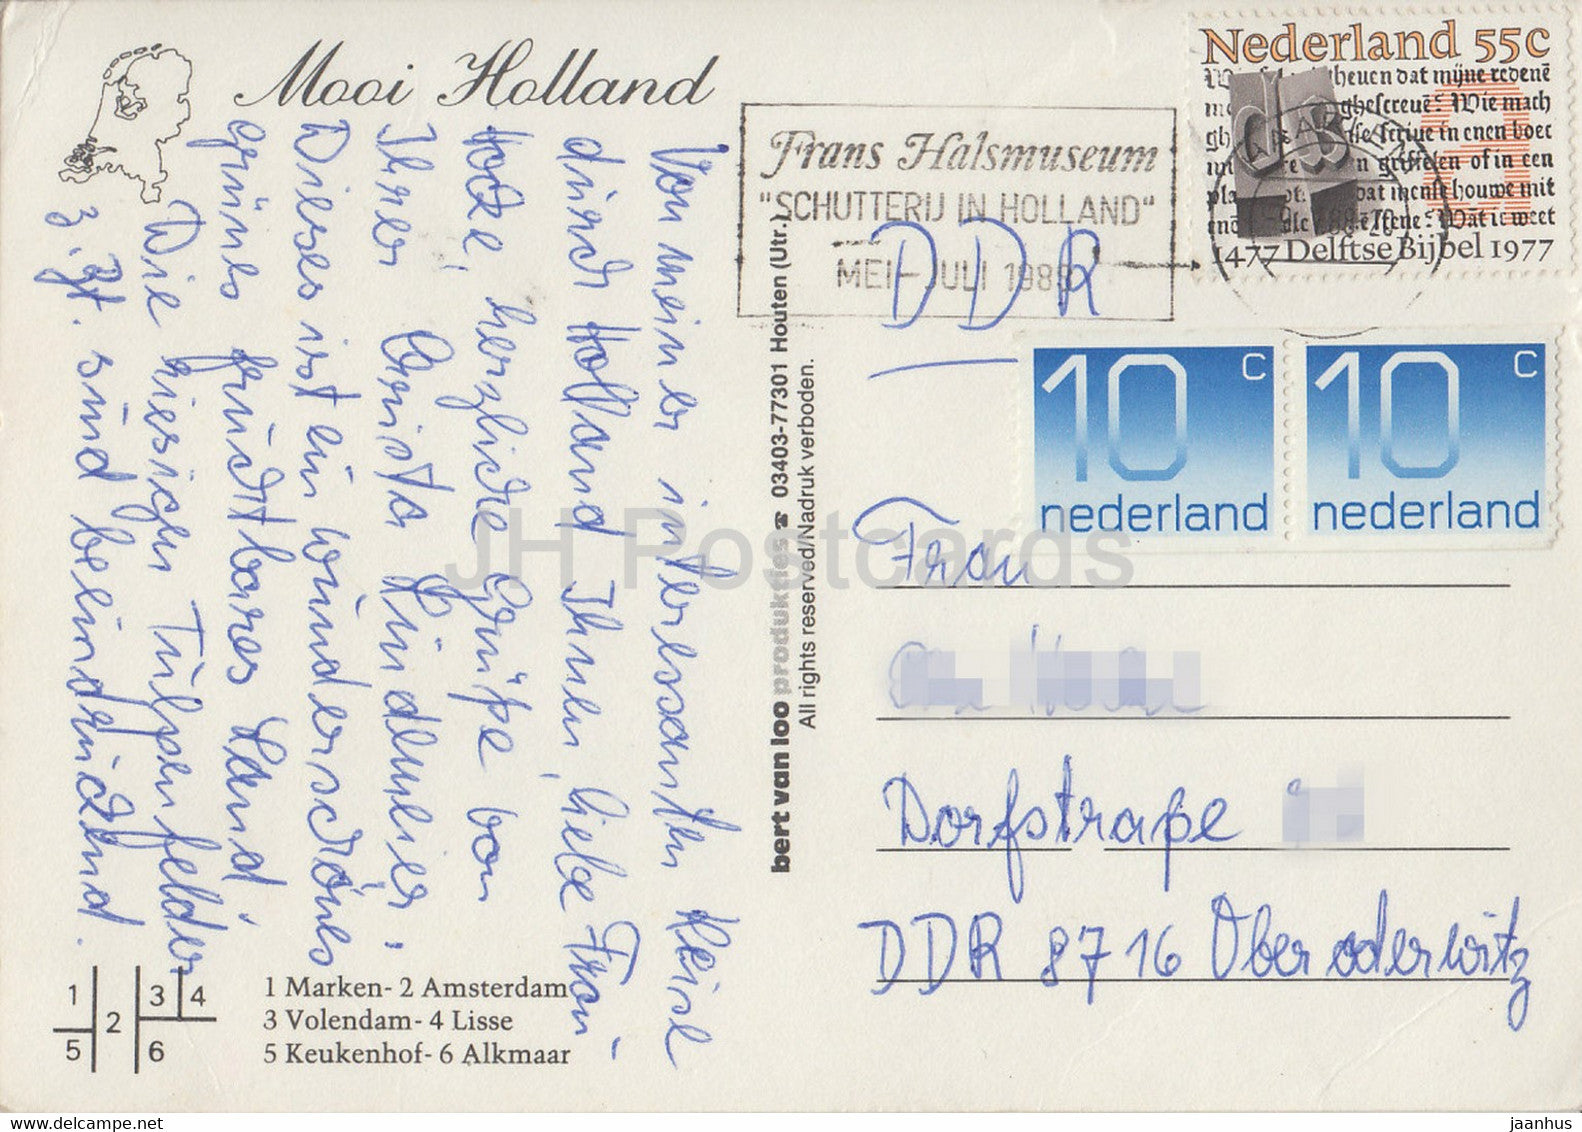 Mooi Holland
Von meiner interessanten Reise
durch Holland Ihnen, liebe Frau
herzliche Grüße von
Ihrer Christa Lindmeier.
Dieses ist ein wunderschönes
grünes fruchtbares Land.
Die hiesigen Tulpenfelder
z. Zt. sind beeindruckend.
1 2 3 4
5 6
1 Marken- 2 Amsterdam
3 Volendam- 4 Lisse
5 Keukenhof- 6 Alkmaar
bert van loo produkties ☎ 03403-77301 Houten (Utr.)
All rights reserved/Nadruk verboden.
Frans Halsmuseum
"SCHUTTERIJ IN HOLLAND"
MEI - JULI 1988
Nederland 55c
heuen dat mijne redenē
ghescreuē? Wie mach
scriue in enen boec
griffelen of in een
plat
dat mense houwe mit
1477 Delftse Bijbel 1977
10 c
nederland
10 c
nederland
DDR
Frau
Dorfstraße
DDR 8716 Oberoderwitz
JH Postcards
www.delcampe.net
jaanhus